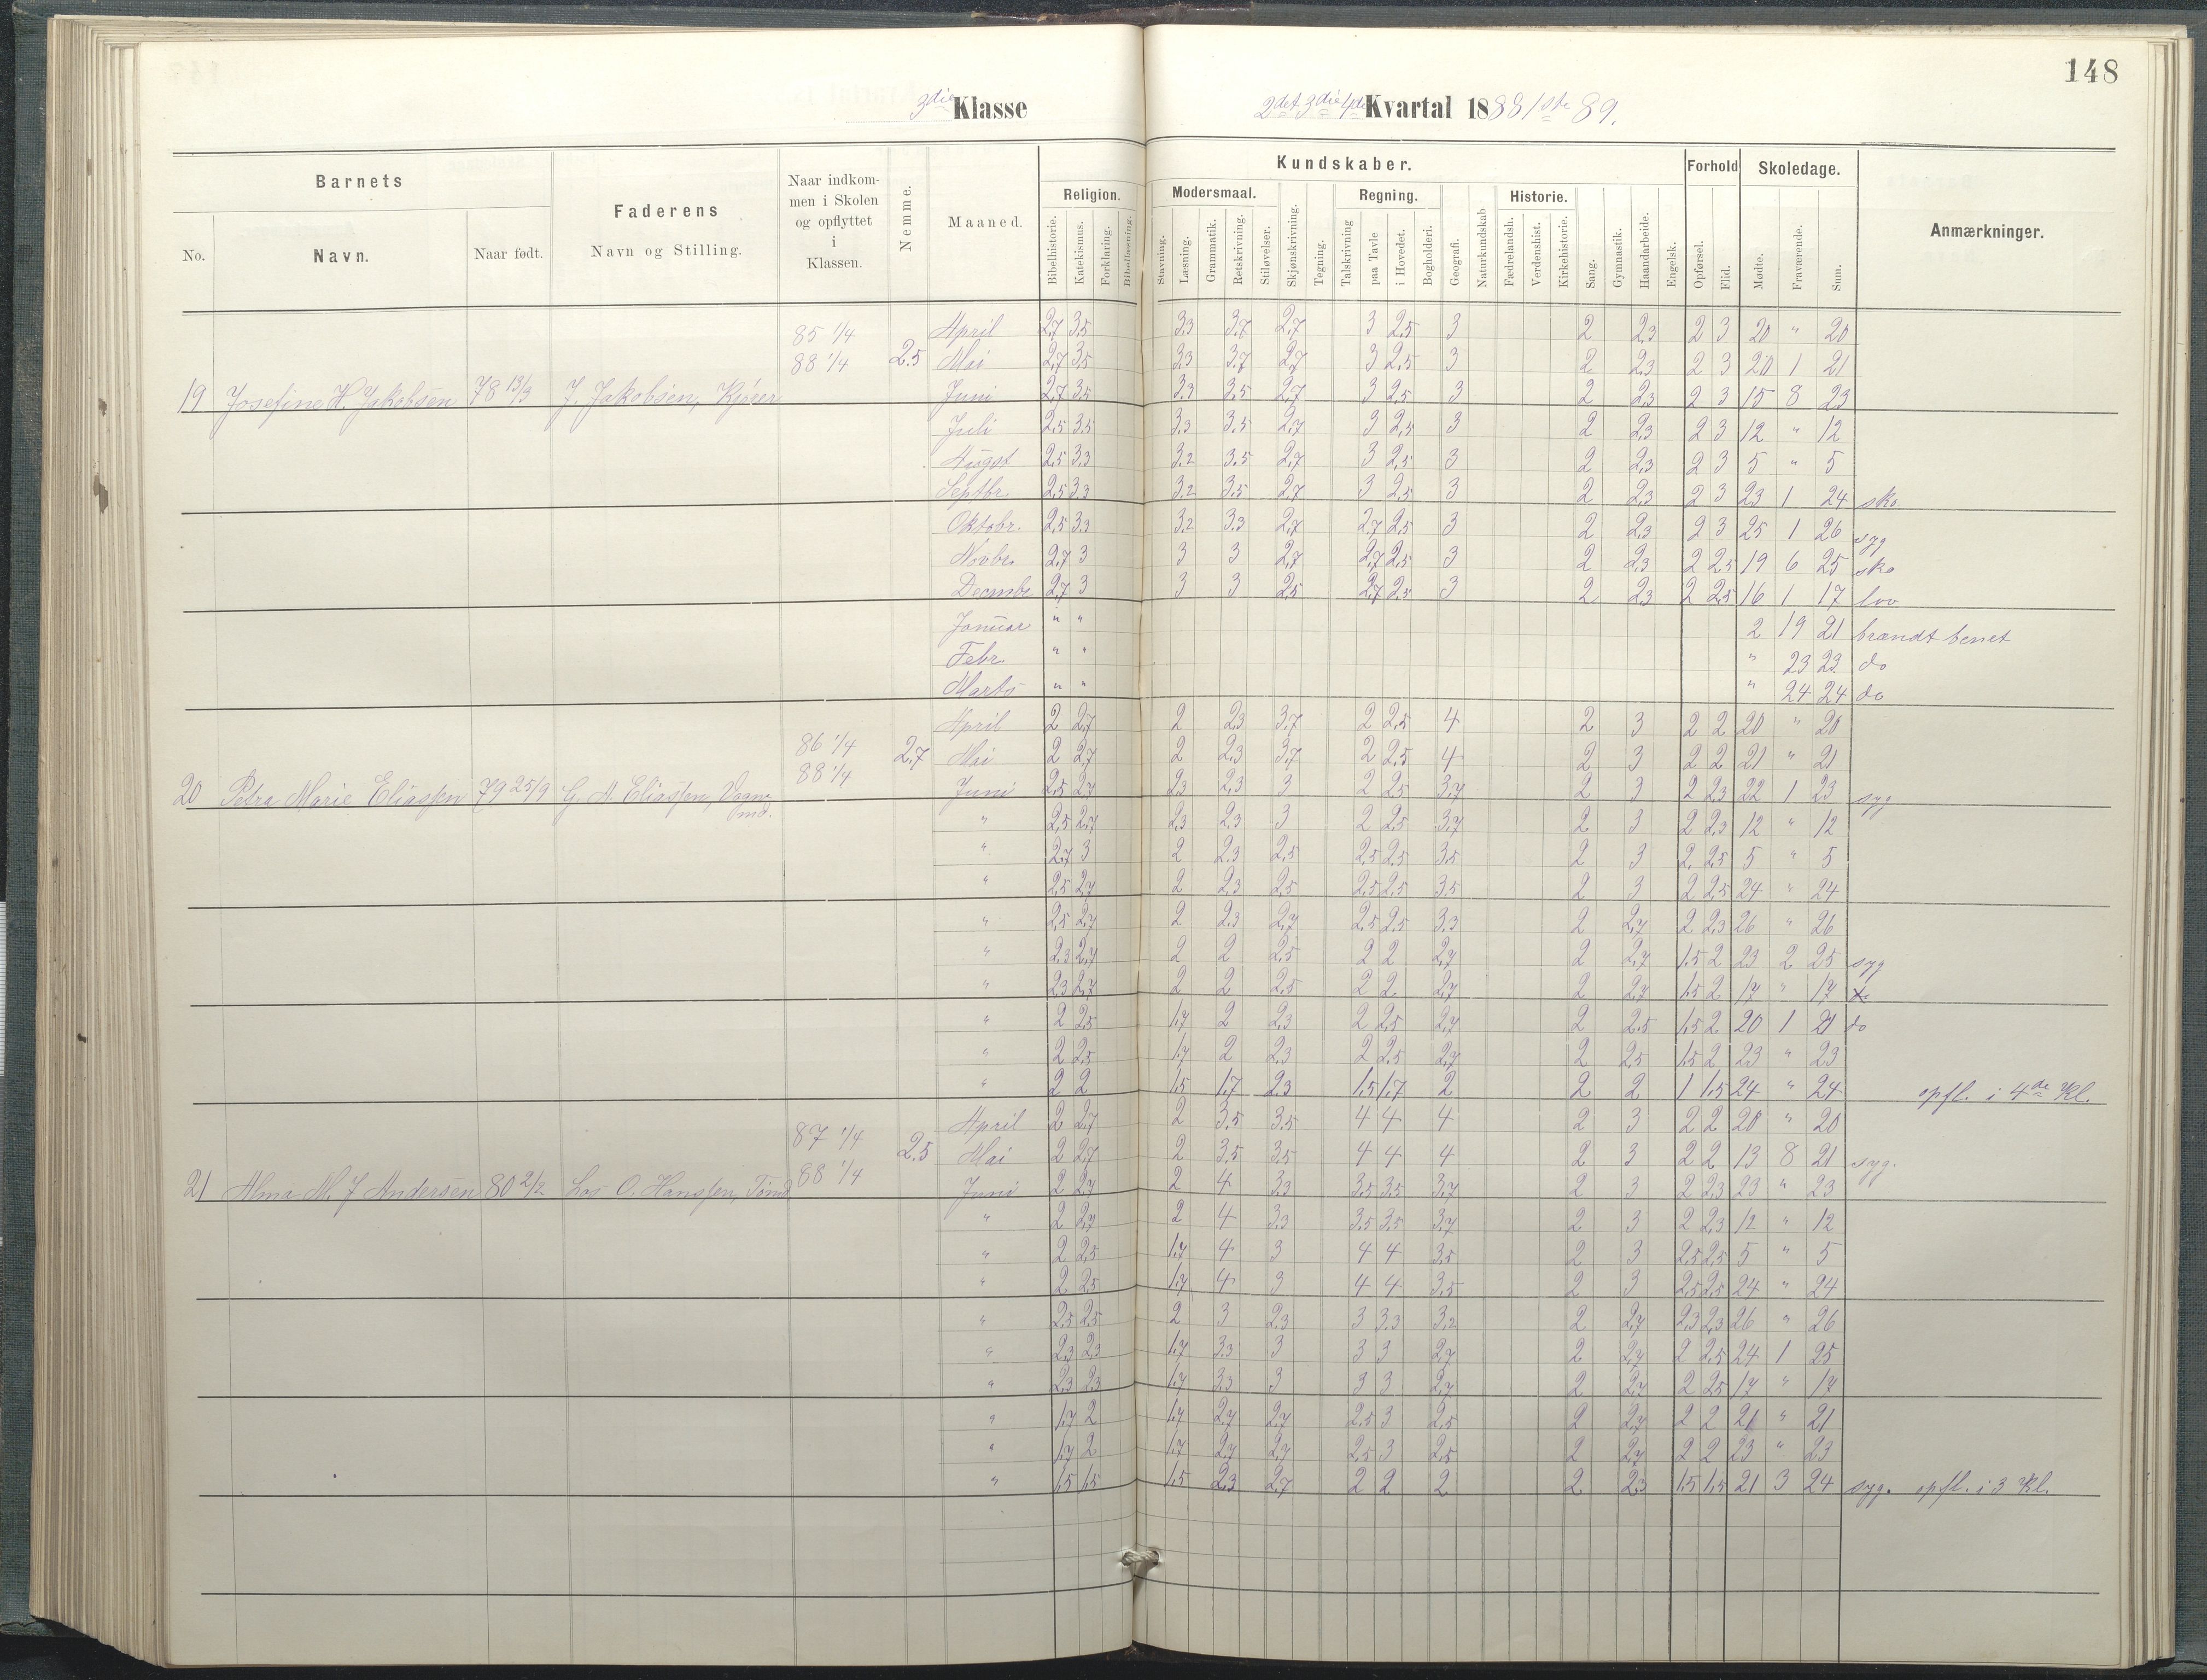 148
3die Klasse 2det 3die 4de Kvartal 1888 1ste 89.
Barnets
Faderens
Naar indkommen i Skolen og opflyttet i Klassen.
Nemme.
Maaned.
Kundskaber.
Forhold
Skoledage.
Anmærkninger.
No. Navn. Naar født. Navn og Stilling.
Religion. Modersmaal. Regning. Historie.
Bibelhistorie. Katekismus. Forklaring. Bibellæsning. Stavning. Læsning. Grammatik. Retskrivning. Stiløvelser. Skjønskrivning. Tegning. Talskrivning paa Tavle i Hovedet. Bogholderi. Geografi. Naturkundskab Fædrelandsh. Verdenshist. Kirkehistorie. Sang. Gymnastik. Haandarbeide. Engelsk. Opførsel. Flid. Mødte. Fraværende. Sum.
85 1/4 April 2,7 3,5 3,3 3,7 2,7 3 2,5 3 2 2,3 2 3 20 " 20
88 1/4 2.5 Mai 2,7 3,5 3,3 3,7 2,7 3 2,5 3 2 2,3 2 3 20 1 21
19 Josefine H. Jakobsen 78 13/3 J. Jakobsen, Kjører Juni 2,7 3,5 3,3 3,5 2,7 3 2,5 3 2 2,3 2 3 15 8 23
Juli 2,5 3,5 3,3 3,5 2,7 3 2,5 3 2 2,3 2 3 12 " 12
August 2,5 3,3 3,2 3,5 2,7 3 2,5 3 2 2,3 2 3 5 " 5
Septbr. 2,5 3,3 3,2 3,5 2,7 3 2,5 3 2 2,3 2 3 23 1 24 sko
Oktobr. 2,5 3,3 3,2 3,3 2,7 2,7 2,5 3 2 2,3 2 3 25 1 26 syg
Novbr. 2,7 3 3 3 2,7 2,7 2,5 3 2 2,3 2 2,5 19 6 25 sko
Decmbr. 2,7 3 3 3 2,5 2,7 2,5 3 2 2,3 2 2,5 16 1 17 lov
Januar " " 2 19 21 brændt benet
Febr. " " " 23 23 do
Marts " " " 24 24 do
April 2 2,7 2 2,3 3,7 2 2,5 4 2 3 2 2 20 " 20
86 1/4 2,7 Mai 2 2,7 2 2,3 3,7 2 2,5 4 2 3 2 2 21 " 21
88 1/4
20 Petra Marie Eliassen 79 25/9 G. A. Eliassen, Vognmd. Juni 2,5 2,7 2,3 2,3 3 2 2,5 3,7 2 3 2 2,3 22 1 23 syg
" 2,5 2,7 2,3 2,3 3 2 2,5 3,7 2 3 2 2,3 12 " 12
" 2,7 3 2 2,3 2,5 2,5 2,5 3,5 2 3 2 2,5 5 " 5
" 2,5 2,7 2 2,3 2,5 2,5 2,5 3,5 2 3 2 2,5 24 " 24
" 2,5 2,7 2 2,3 2,7 2,5 2,5 3,3 2 2,7 2 2,3 26 " 26
" 2,3 2,7 2 2 2,5 2 2 2,7 2 2,7 1,5 2 23 2 25 syg
" 2,3 2,7 2 2 2,5 2 2 2,7 2 2,7 1,5 2 17 " 17
" 2 2,5 1,7 2 2,3 2 2,5 2,7 2 2,5 1,5 2 20 1 21 do
" 2 2,5 1,7 2 2,3 2 2,5 2,7 2 2,5 1,5 2 23 " 23
" 2 2 1,5 1,7 2,3 1,5 1,7 2 2 2 1 1,5 24 " 24 opfl. i 4de Kl.
87 1/4 April 2 2,7 2 3,5 3,5 4 4 4 2 3 2 2 20 " 20
2,5 Mai 2 2,7 2 3,5 3,5 4 4 4 2 3 2 2 13 8 21 syg.
88 1/4
21 Alma M. J Andersen 80 2/2 Los O. Hanssen, Tømd Juni 2 2,7 2 4 3,3 3,5 3,5 3,7 2 3 2 2,3 23 " 23
" 2 2,7 2 4 3,3 3,5 3,5 3,7 2 3 2 2,3 12 " 12
" 2 2,5 1,7 4 3 4 4 3,5 2 3 2,5 2,5 5 " 5
" 2 2,5 1,7 4 3 4 4 3,5 2 3 2,5 2,5 24 " 24
" 2,5 2,5 2 3 2,3 3 3,3 3,2 2 2,7 2,3 2,3 26 " 26
" 2,3 2,3 1,7 3,3 3 3 3 2,7 2 2,7 2 2,5 24 1 25
" 2,3 2,3 1,7 3,3 3 3 3 2,7 2 2,7 2 2,5 17 " 17
" 1,7 2 1,7 2,7 2,7 2,5 3 2,5 2 2,7 2 2 21 " 21
" 1,7 2 1,7 2,7 2,7 2,5 3 2,5 2 2,7 2 2 23 " 23
" 1,5 1,5 1,5 2,3 2,7 2 2 2 2 2,3 1,5 1,5 21 3 24 syg. opfl. i 3 Kl.